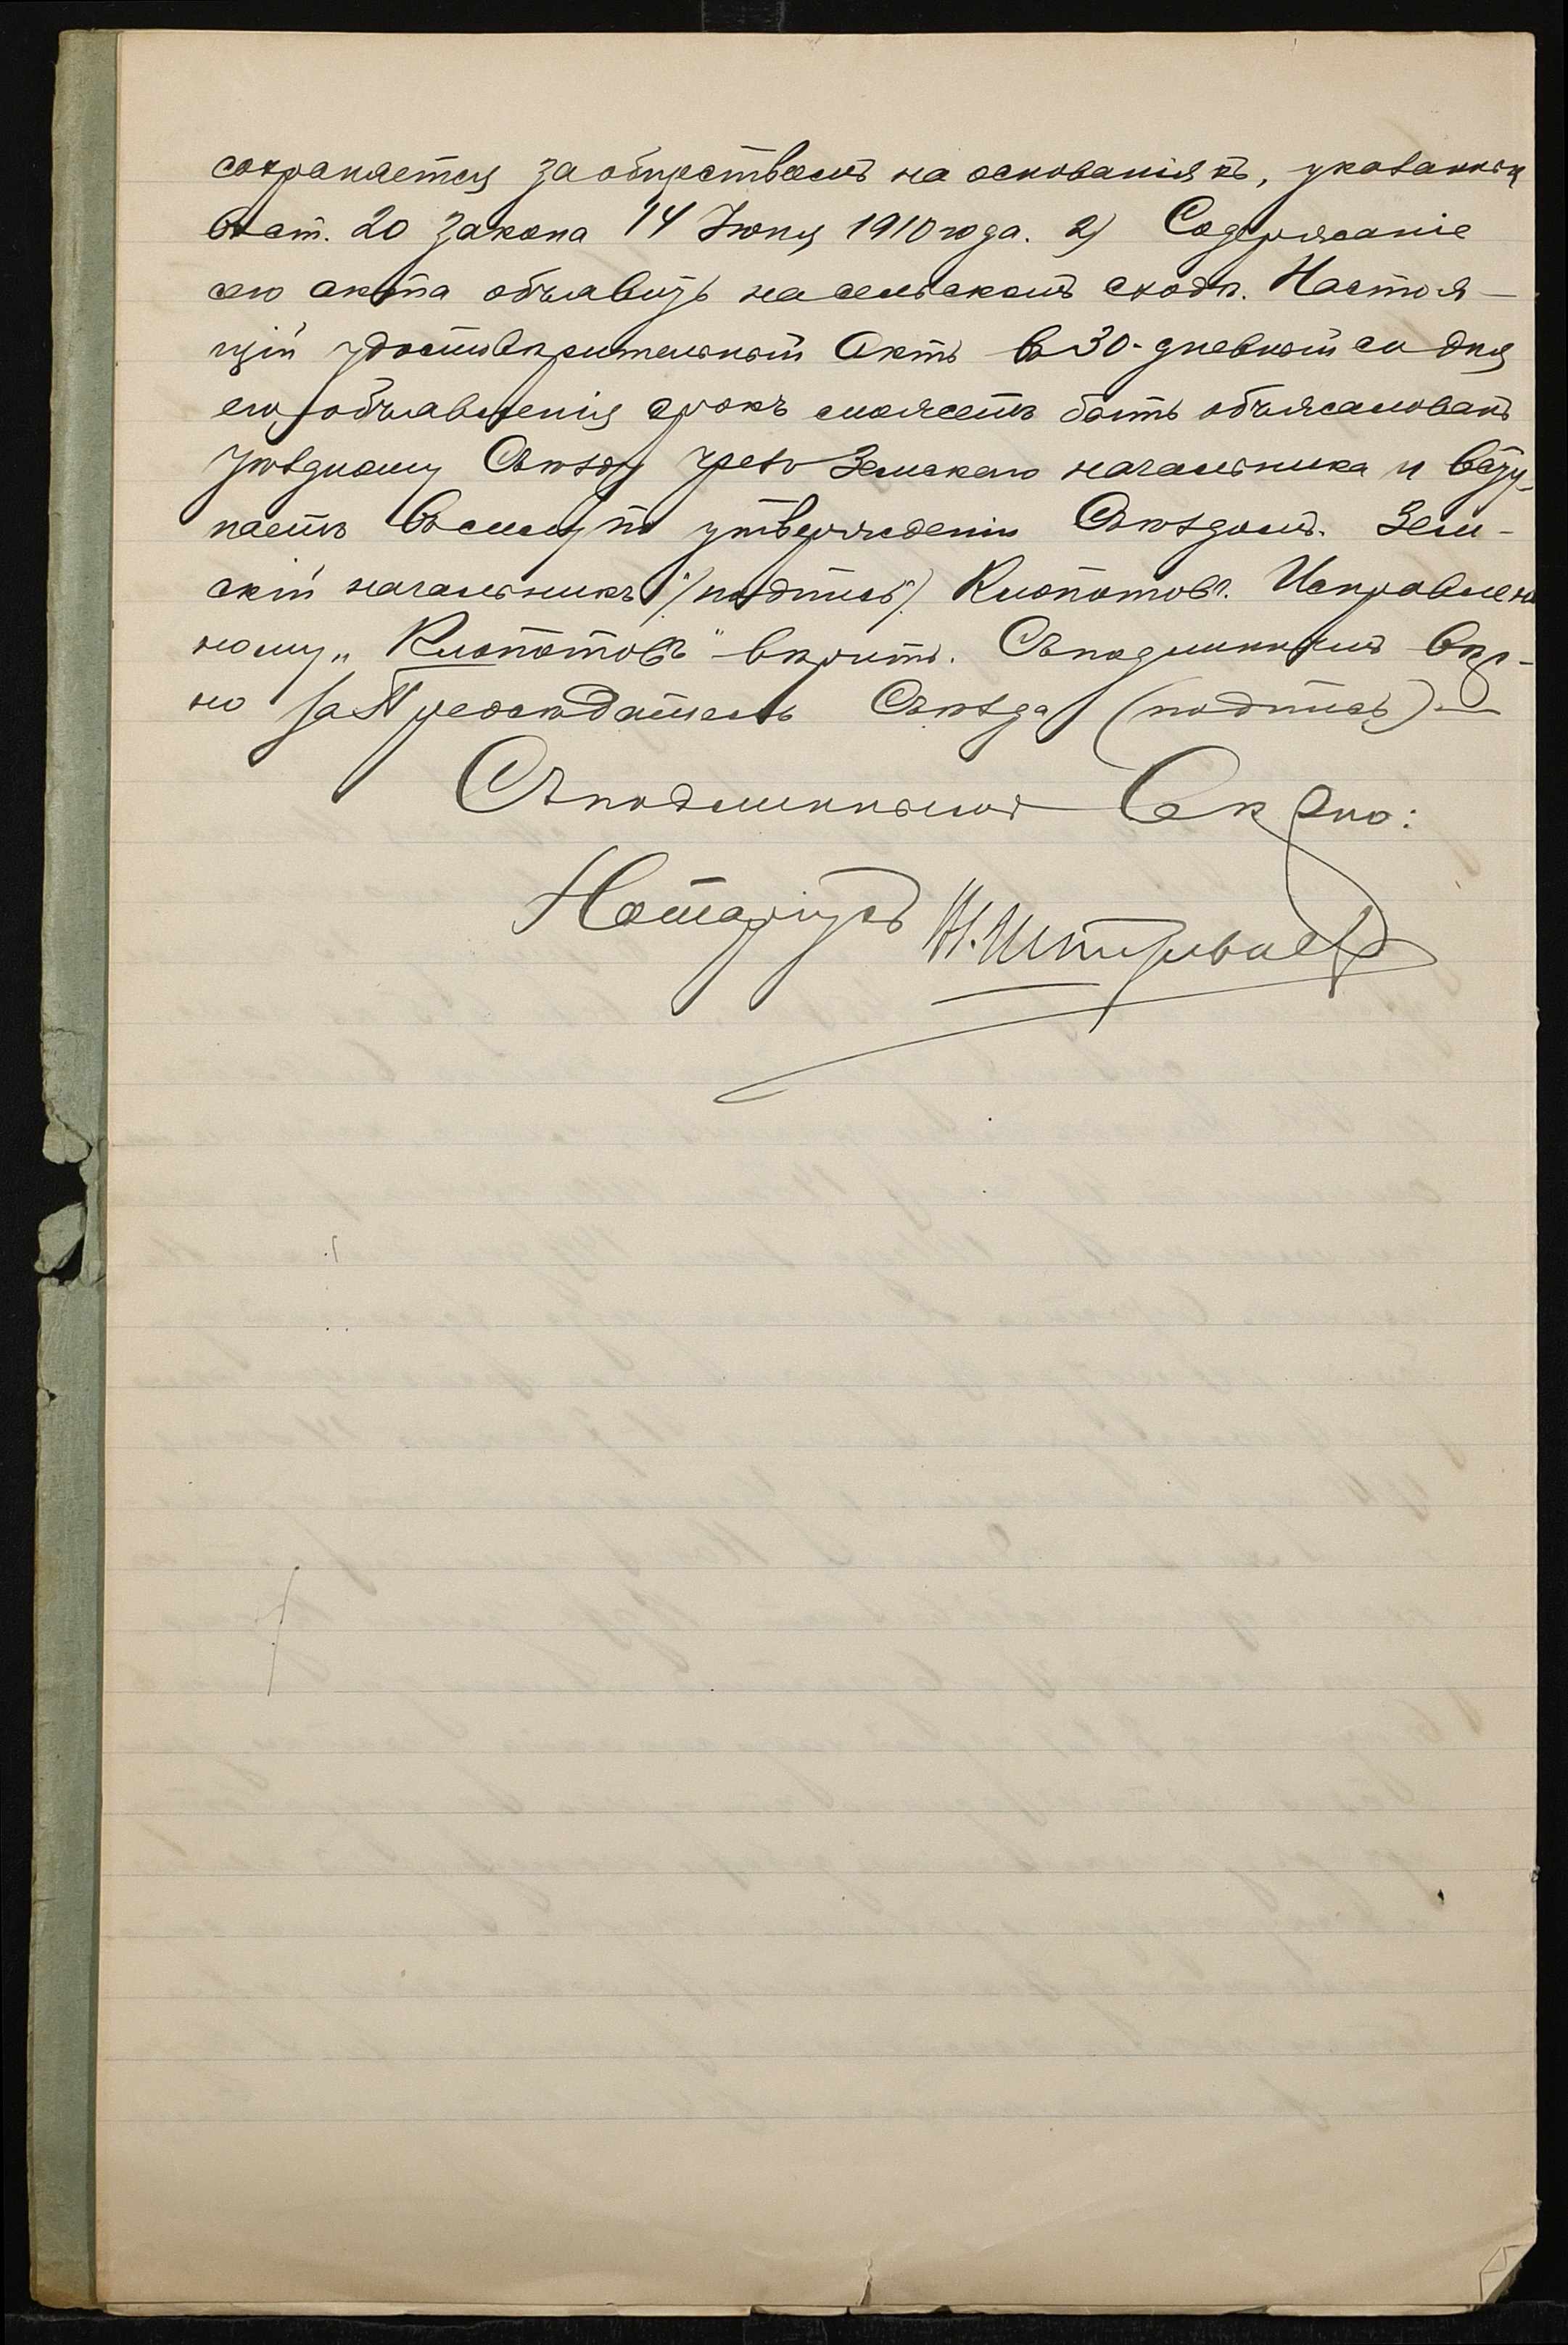 сохраняется за обществомъ на основаніяхъ, указанныхъ
въ ст. 20 закона 14 Іюня 1910 года. 2) Содержаніе
сего акта объявить на сельскомъ сходѣ. Настоя-
щій удостовѣрительный Актъ въ 30-дневный со дня
его объявленія срокъ можетъ быть обжалованъ
уѣздному Съѣзду чрезъ Земскаго начальника и всту-
паетъ въ силу по утвержденіи Съѣздомъ. Зем-
скій начальникъ /подпись/ Клопотовъ. Исправлен
ному „Клопотовъ" вѣрить. Съ подлиннымъ вѣр-
но За Предсѣдатель Съѣзда (подпись) —
Съ подлиннымъ вѣрно:
Нотаріусъ